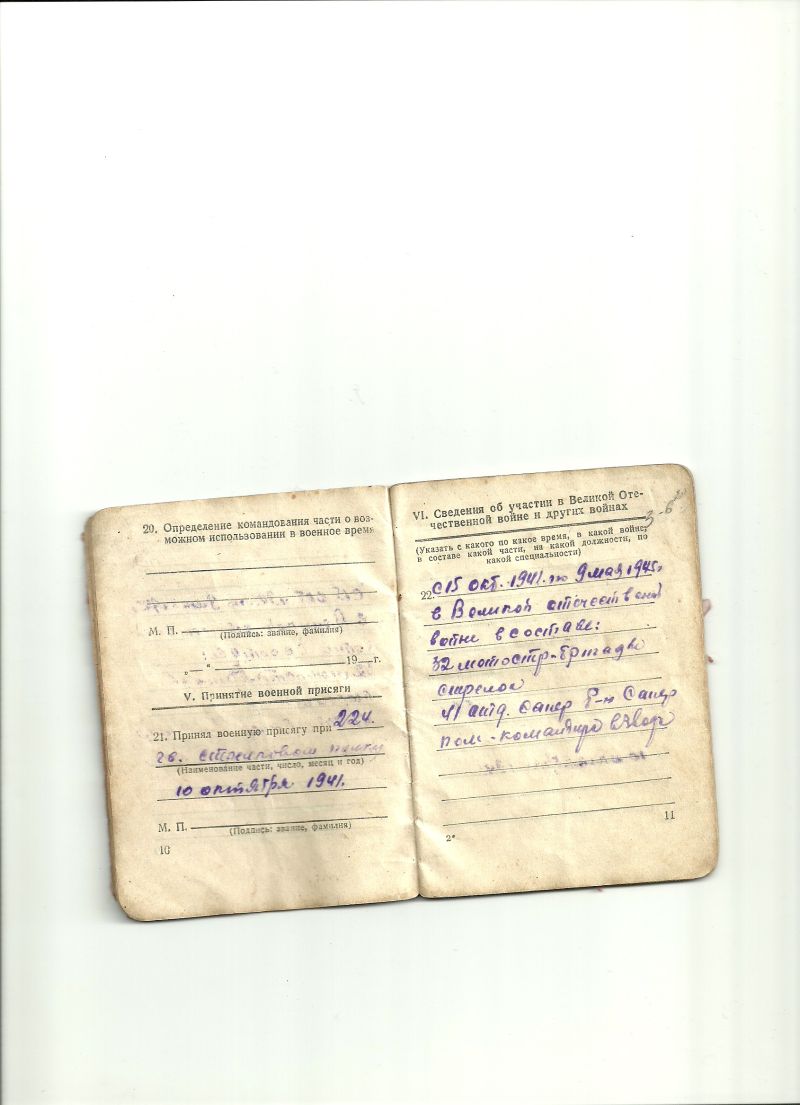 20. Определение командования части о воз-
можном использовании в военное время
М. П.
(Подпись: звание, фамилия)
„ — “ 19 — г.
V. Принятие военной присяги
21. Принял военную присягу при 224.
гв. стрелковом полку
(Наименование части, число, месяц и год)
10 октября 1941.
М. П.
(Подпись: звание, фамилия)
10
VI. Сведения об участии в Великой Оте-
чественной войне и других войнах
(Указать с какого по какое время, в какой войне,
в составе какой части, на какой должности, по
какой специальности)
22. С 15 окт. 1941. по 9 мая 1945г
в Великой отечествен
войне в составе:
32 мотостр-бригады
стрелок
41 отд. сапер б-н Сапер
пом-командира взвода
2*
11